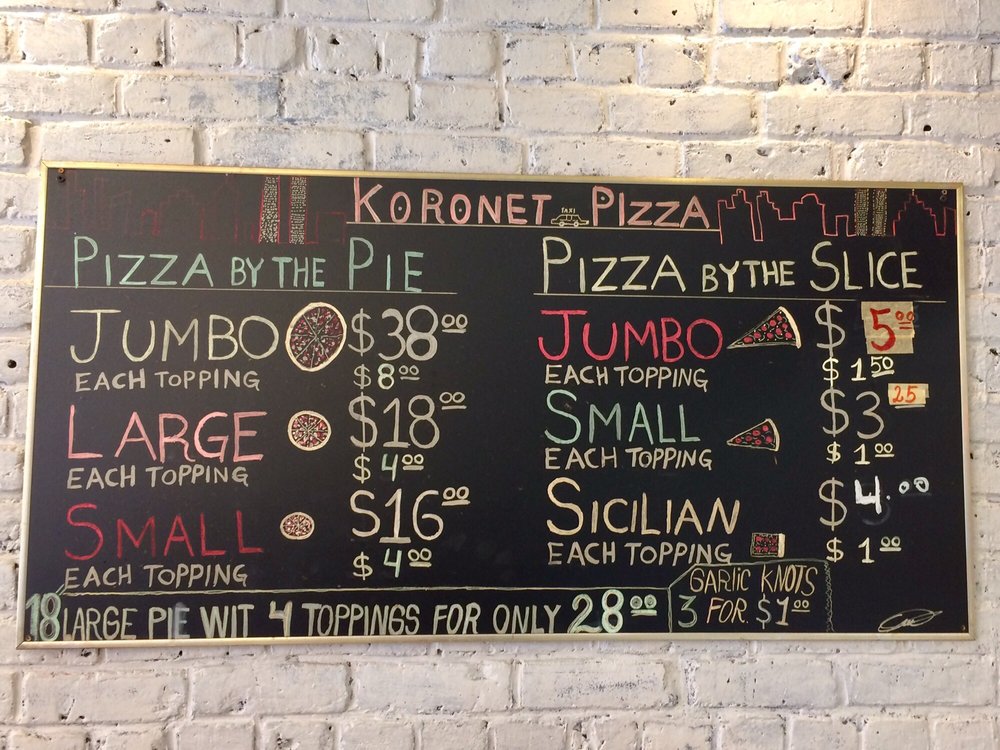 KORONET TAXI PIZZA
PIZZA BY THE PIE
JUMBO $38.00
EACH TOPPING $8.00
LARGE $18.00
EACH TOPPING $4.00
SMALL $16.00
EACH TOPPING $4.00
PIZZA BY THE SLICE
JUMBO $5.00
EACH TOPPING $1.50
SMALL $3.25
EACH TOPPING $1.00
SICILIAN $4.00
EACH TOPPING $1.00
18 LARGE PIE WIT 4 TOPPINGS FOR ONLY 28.00
GARLIC KNOTS
3 FOR $1.00